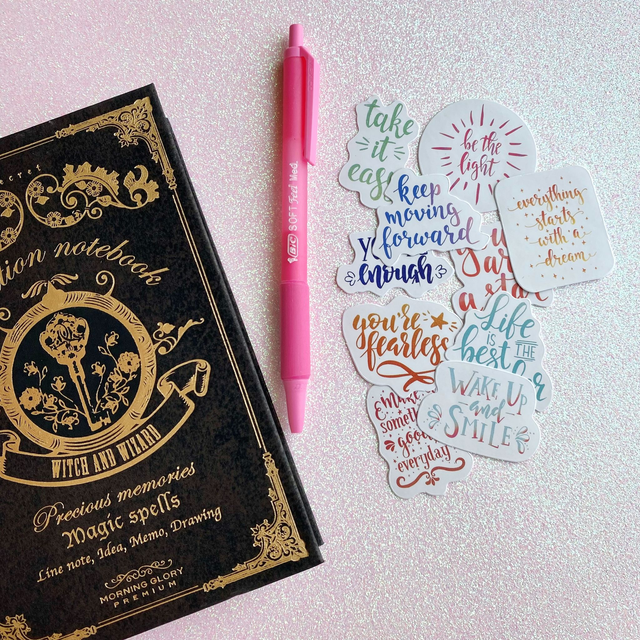 tion notebook
WITCH AND WIZARD
Precious memories
Magic spells
Line note, Idea, Memo, Drawing
MORNING GLORY
PREMIUM
BIC SOFT Feel Med.
take
it
easy
be the
light
keep
moving
forward
enough
everything
starts
with a
dream
a star
you're
fearless
Life
is THE
best
WAKE UP
and
SMILE
make
good
everyday